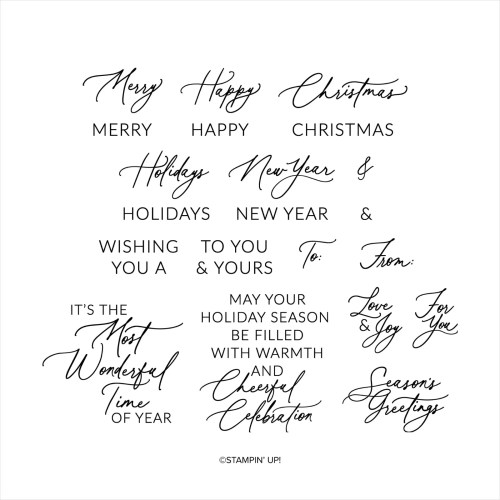 Merry Happy Christmas
MERRY HAPPY CHRISTMAS
Holidays New Year &
HOLIDAYS NEW YEAR &
WISHING
YOU A
TO YOU
& YOURS
To:
From:
IT'S THE
Most
Wonderful
Time
OF YEAR
MAY YOUR
HOLIDAY SEASON
BE FILLED
WITH WARMTH
AND
Cheerful
Celebration
Love
& Joy
For
You
Season's
Greetings
©STAMPIN' UP!